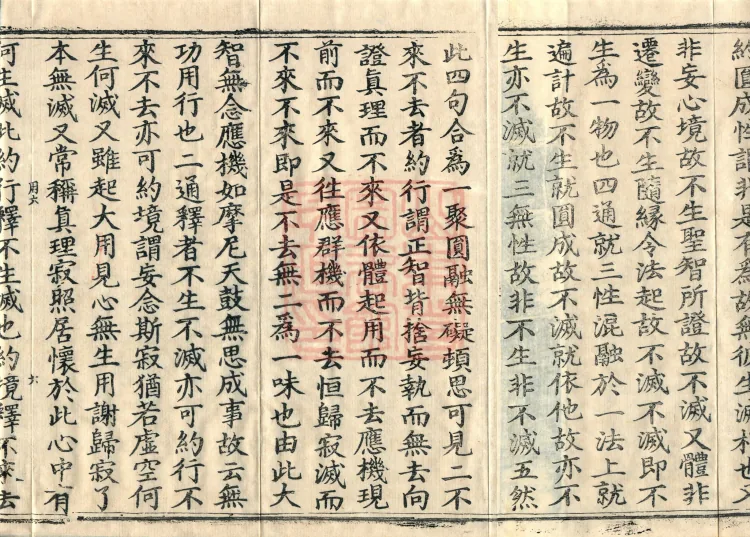 約圓成怡謂非是不為故無彼生滅本也又
非妄心境故不生聖智所證故不滅又體非
遷變故不生隨緣令法起故不滅不滅即不
生為一物也四通就三性混融於一法上就
遍計故不生就圓成故不滅就依他故亦不
生亦不滅就三無性故非不生非不滅五然
此四句合為一聚圓融無礙頓思可見二不
來不去者約行謂正智背捨妄執而無去向
證真理而不來又依體起用而不去應機現
前而不來又往應群機而不去恒歸寂滅而
不來不來即是不去無二為一味也由此大
智無念應機如摩尼天鼓無思成事故云無
功用行也二通釋者不生不滅亦可約行不
來不去亦可約境謂妄念斯寂猶若虛空何
生何滅又雖起大用見心無生用謝歸寂了
本無滅又常稱真理寂照居懷於此心中有
用六
六
何生滅此約行釋不生滅也約境釋不來去